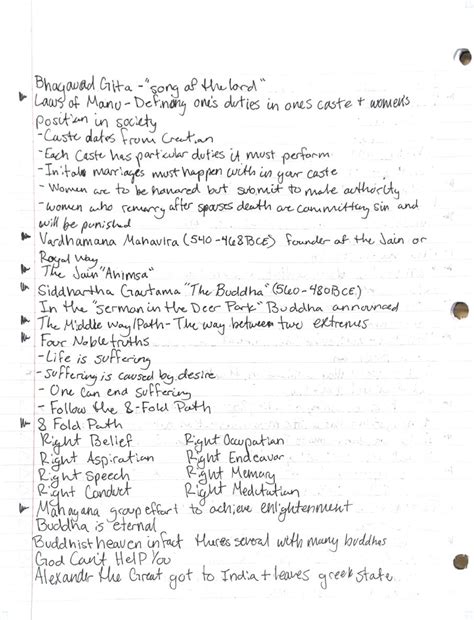 Bhagavad Gita - "song of the lord"
Laws of Manu - Defining one's duties in ones caste + womens
position in society
- Caste dates from Creation
- Each Caste has particular duties it must perform
- Initale marriages must happen with in your caste
- Women are to be honored but submit to male authority
- women who remarry after spouses death are committing sin and
will be punished
Vardhamana Mahavira (540-468BCE) founder of the Jain or
Royal Way
The Jain "Ahimsa"
Siddhartha Gautama "The Buddha" (560-480BCE)
In the "sermon in the Deer Park" Buddha announced
The Middle Way/Path - The way between two extremes
Four Noble truths
- Life is suffering
- suffering is caused by desire
- One can end suffering
- Follow the 8-Fold Path
8 Fold Path
Right Belief Right Occupation
Right Aspiration Right Endeavor
Right Speech Right Memory
Right Conduct Right Meditation
Mahayana group effort to achieve enlightenment
Buddha is eternal
Buddhist heaven infact theres several with many buddhas
God Can't Help You
Alexander the Great got to India + leaves greek state